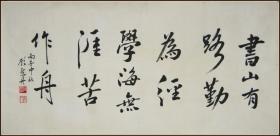 書山有
路勤
為徑
學海無
涯苦
作舟
丙子中秋